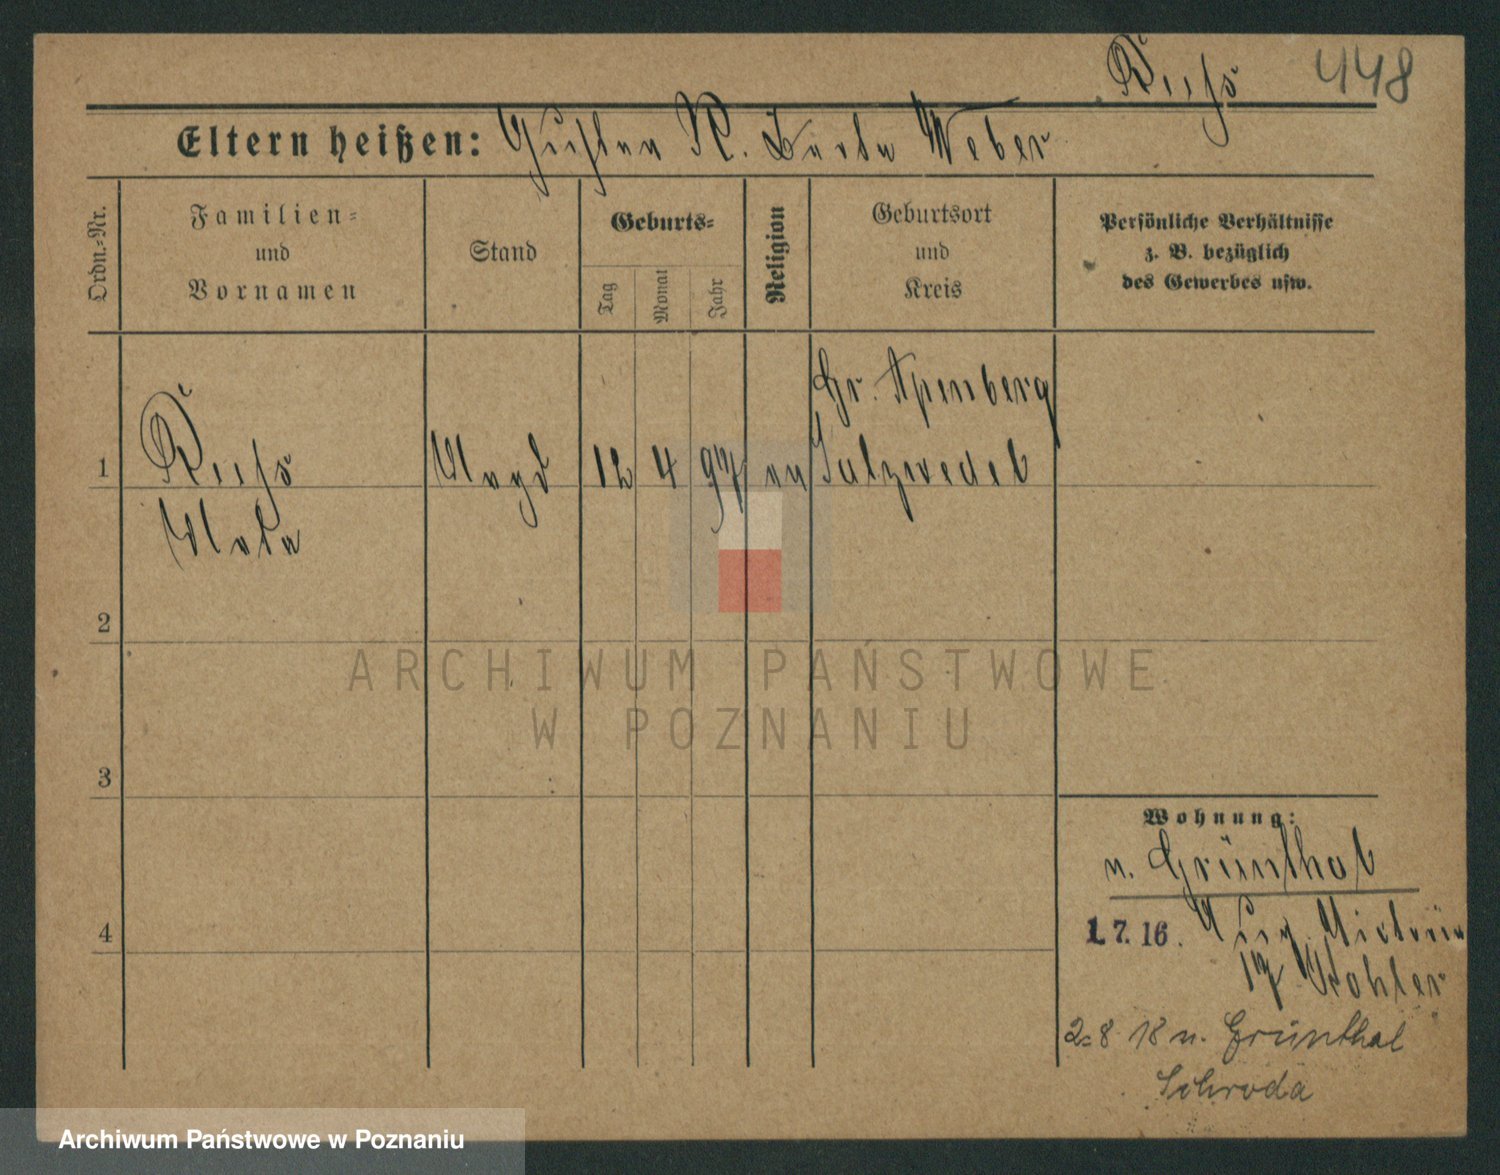 448
Eltern heißen: Gustav R. Berta Weber
Ordn.-Nr.
Familien-
und
Vornamen
Stand
Geburts-
Tag
Monat
Jahr
Religion
Geburtsort
und
Kreis
Persönliche Verhältnisse
z. B. bezüglich
des Gewerbes usw.
Gr. Apenberg
1
Magd 12 4 97 ev Salzwedel
2
3
4
Wohnung:
n. Grünthal
1. 7. 16. Aug. Victoria
17 Kohler
2.8 18 n. Grünthal
Schroda
ARCHIWUM PAŃSTWOWE
W POZNANIU
Archiwum Państwowe w Poznaniu